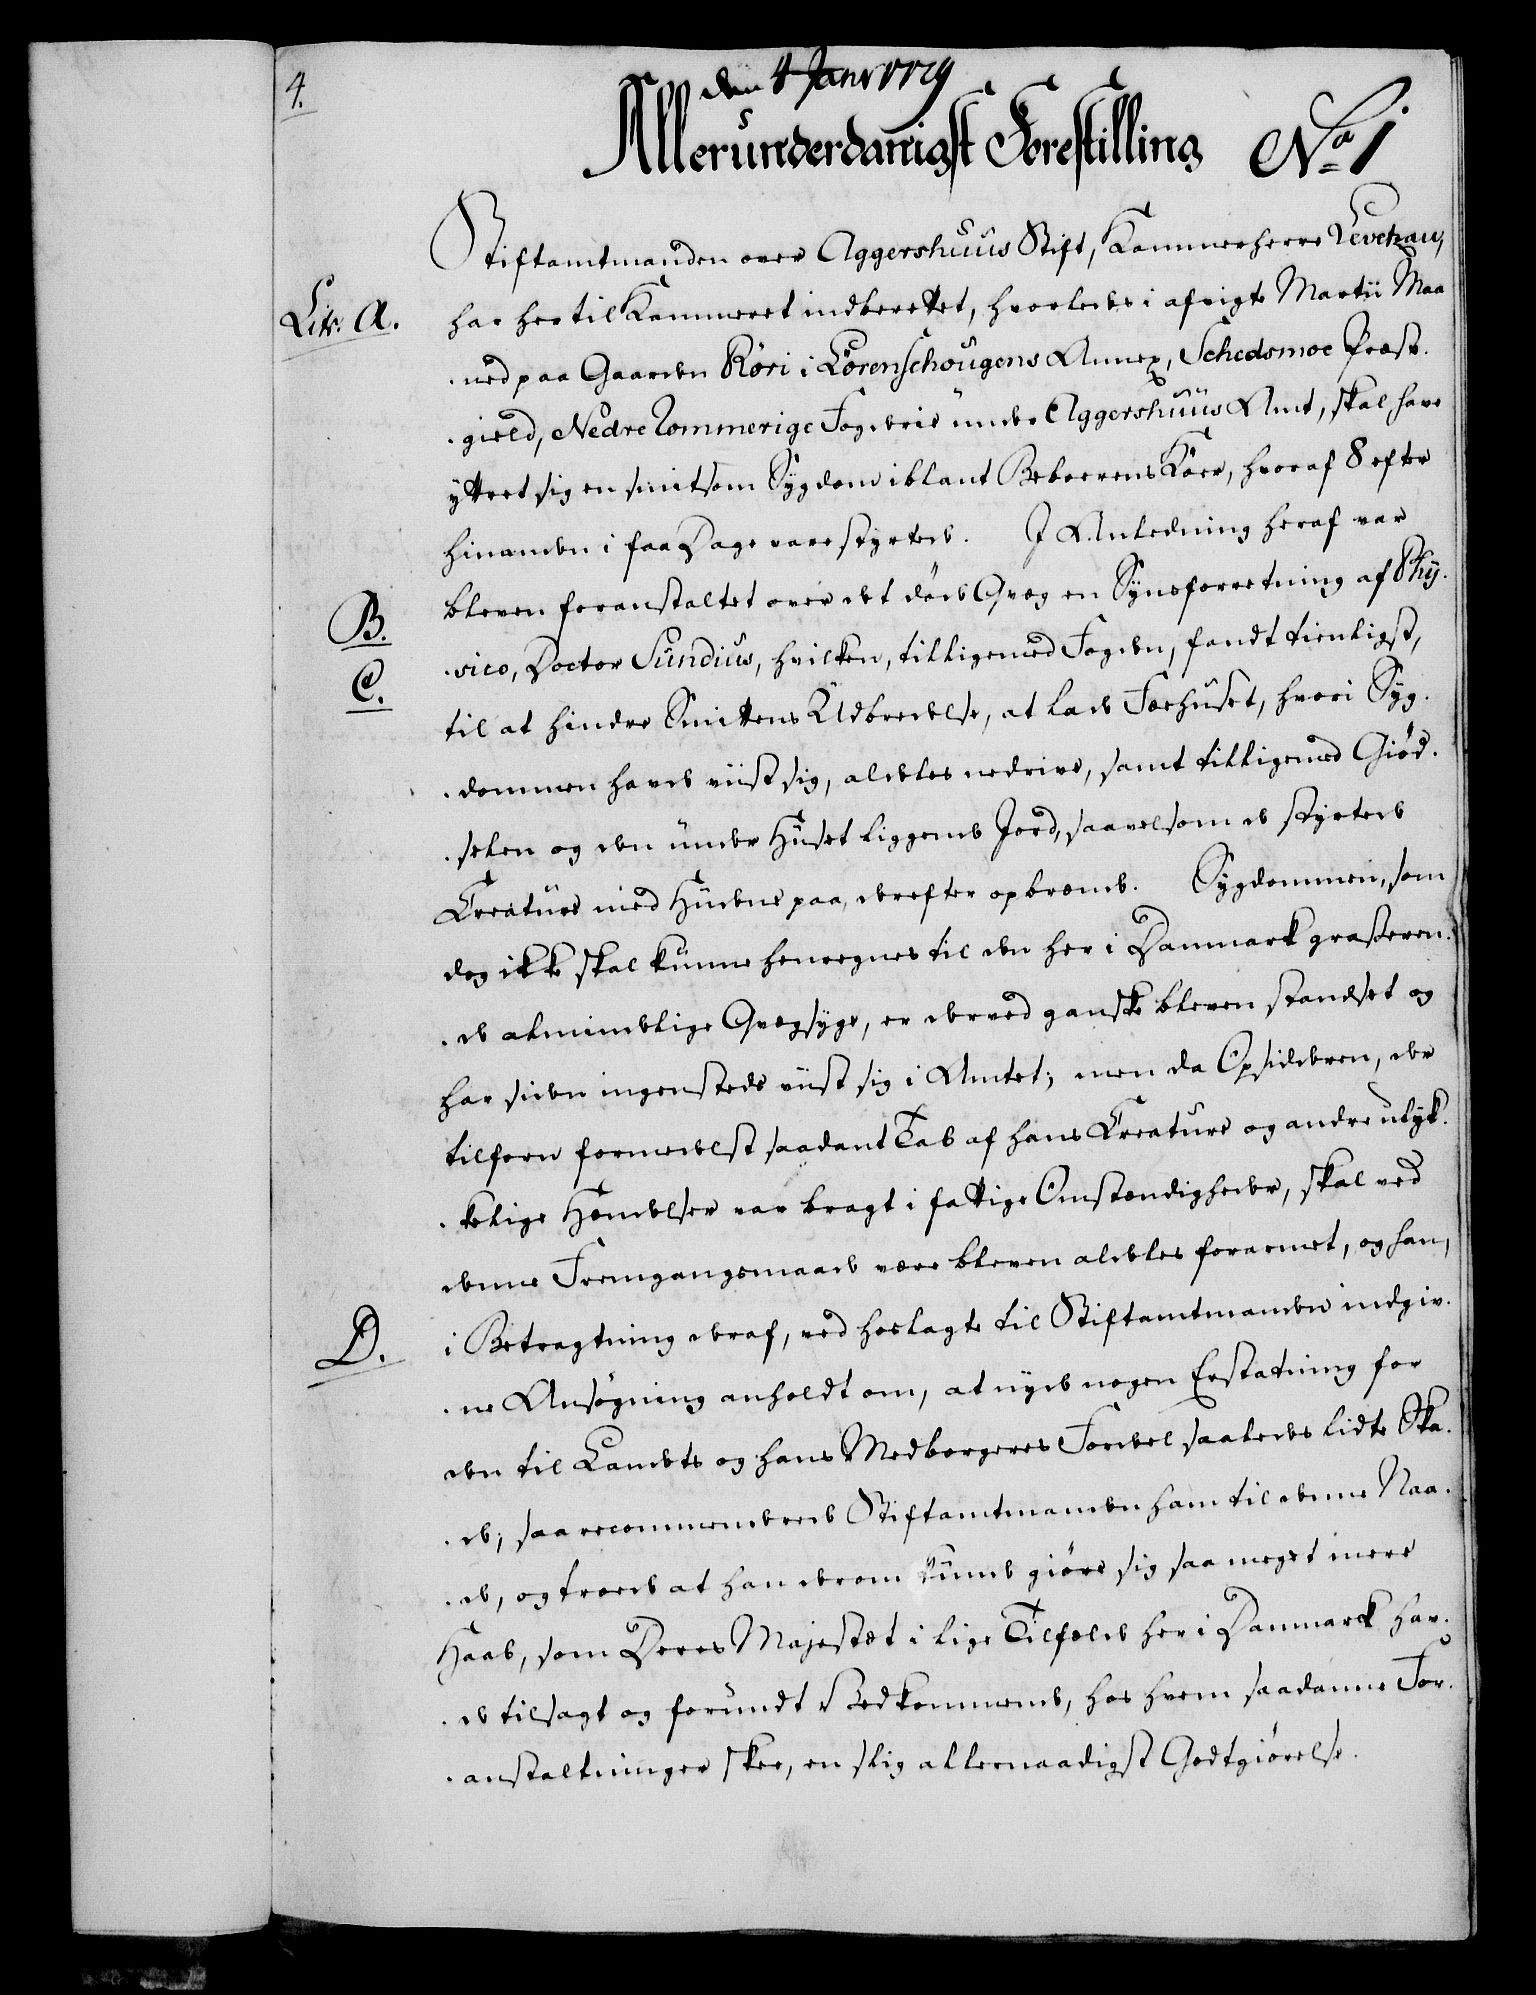 4.
den 4 Janv 1779
Allerunderdanigst Forestilling No 1
Stiftamtmanden over Aggershuus Stift, Kammerherre Levetzau,
Litr. A.
har her til Kammeret indberettet, hvorledes i afvigte Martii Maa
. ned paa Gaarden Röri i Lörenschougens Annex, Schedsmoe Præste.
. gield, Nedre Rommerige Fogderie under Aggershuus Amt, skal have
yttret sig en smitsom Sygdom iblant Beboerens Köer, hvoraf 8 efter
hinanden i faa Dage vare styrtede. I Anledning heraf var
bleven foranstaltet over det döde Qvæg en Synsforretning af Phÿ.
B.
. sico, Doctor Sundius, hvilken, tilligemed Fogden, fandt tienligst,
C.
til at hindre Smittens Udbredelse, at lade Fæehuset, hvori Syg.
. dommen havde viist sig, aldeles nedrive, samt tilligemed Giöd.
. selen og den under Huset liggende Jord, saavelsom de styrtede
Creature med Huderne paa, derefter opbrænde. Sygdommen, som
dog ikke skal kunne henregnes til den her i Danmark grasseren.
. de almindelige Qvægsyge, er derved ganske bleven standset og
har siden ingensteds viist sig i Amtet; men da Opsidderen, der
tilforn formedelst saadant Tab af hans Creature og andre ulyk.
. kelige Hændelser var bragt i fattige Omstændigheder, skal ved
denne Fremgangsmaade være bleven aldeles forarmet, og han,
D.
i Betragtning deraf, ved hoslagte til Stiftamtmanden indgiv.
. ne Ansögning anholdt om, at nyde nogen Erstatning for
den til Landets og hans Medborgeres Fordel saaledes lidte Ska.
. de; saa recommenderede Stiftamtmanden ham til denne Naa.
. de, og troede at han derom kunde giöre sig saa meget mere
Haab, som Deres Majestæt i lige Tilfælde her i Danmarck hav.
. de tilsagt og forundt Vedkommende, hos hvem saadanne For.
. anstaltninger skee, en slig allernaadigst Godtgiörelse.